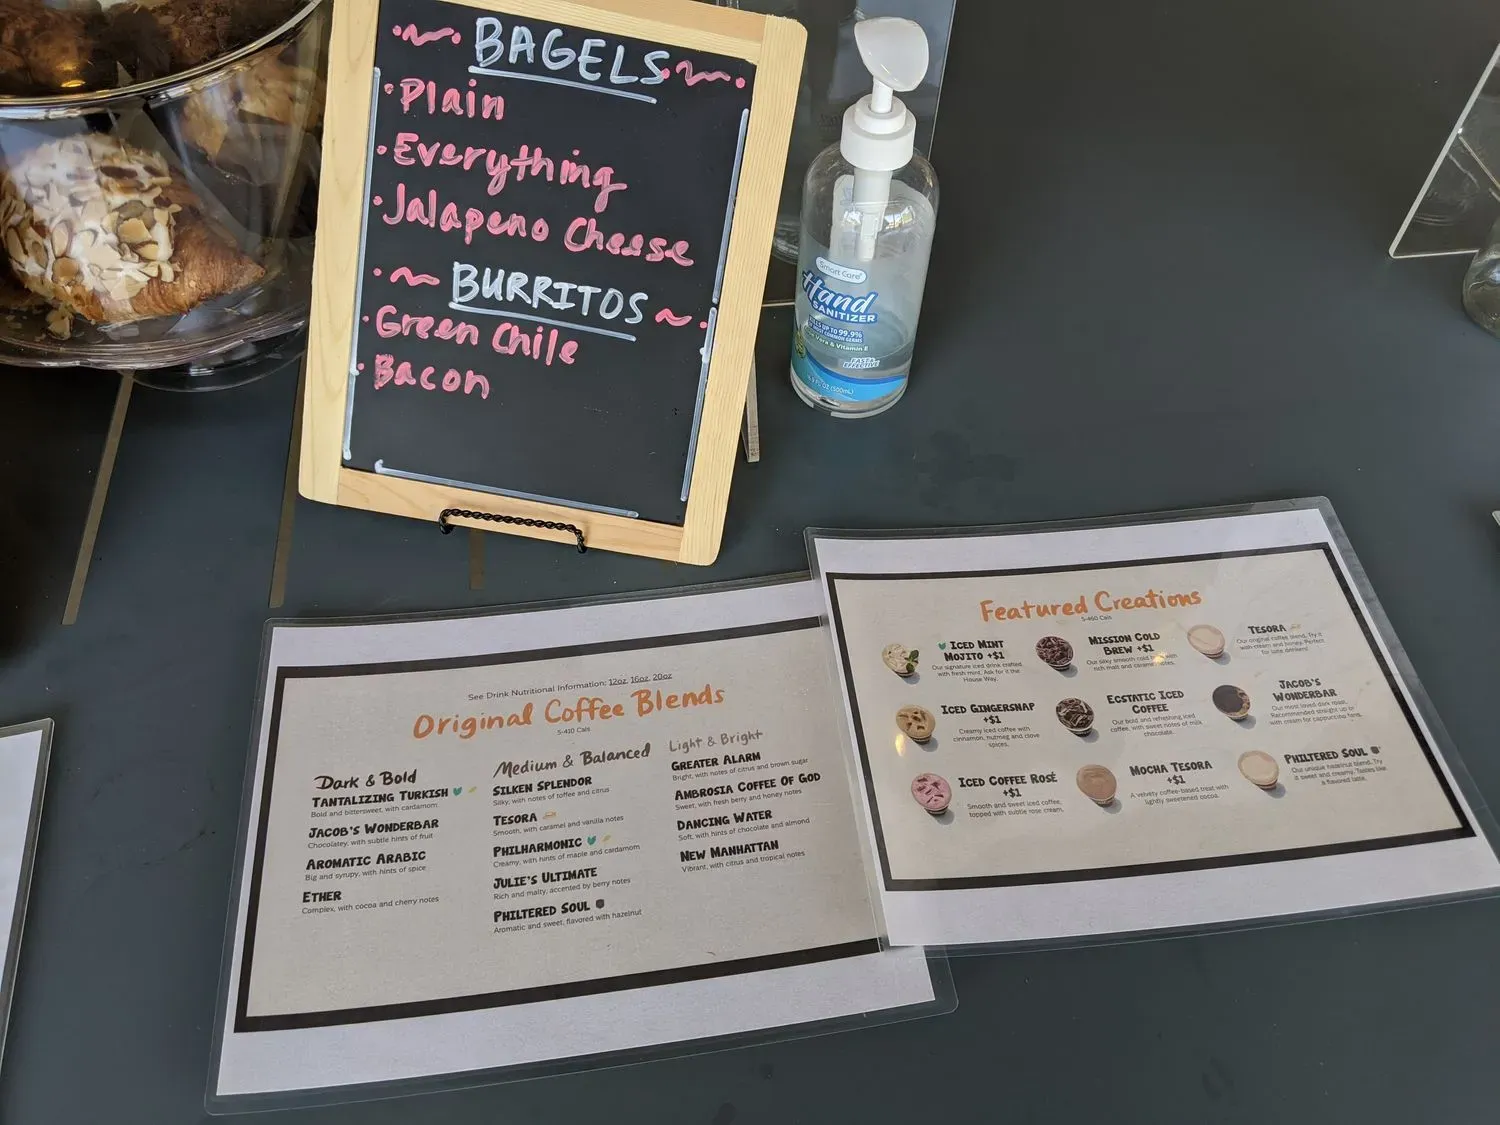 BAGELS
Plain
Everything
Jalapeno Cheese
BURRITOS
Green Chile
Bacon
Smart Care
Hand
SANITIZER
KILLS UP TO 99.9%
Vera & Vitamin E
FAST &
EFFECTIVE
FL OZ (500mL)
See Drink Nutritional Information: 12oz, 16oz, 20oz
Original Coffee Blends
5-410 Cals
Dark & Bold
TANTALIZING TURKISH
Bold and bittersweet, with cardamom
JACOB'S WONDERBAR
Chocolatey, with subtle hints of fruit
AROMATIC ARABIC
Big and syrupy, with hints of spice
ETHER
Complex, with cocoa and cherry notes
Medium & Balanced
SILKEN SPLENDOR
Silky, with notes of toffee and citrus
TESORA
Smooth, with caramel and vanilla notes
PHILHARMONIC
Creamy, with hints of maple and cardamom
JULIE'S ULTIMATE
Rich and malty, accented by berry notes
PHILTERED SOUL
Aromatic and sweet, flavored with hazelnut
Light & Bright
GREATER ALARM
Bright, with notes of citrus and brown sugar
AMBROSIA COFFEE OF GOD
Sweet, with fresh berry and honey notes
DANCING WATER
Soft, with hints of chocolate and almond
NEW MANHATTAN
Vibrant, with citrus and tropical notes
Featured Creations
5-460 Cals
ICED MINT
MOJITO +$1
Our signature iced drink crafted
with fresh mint. Ask for it the
House Way.
MISSION COLD
BREW +$1
Our silky smooth cold with
rich malt and caramel notes.
TESORA
Our original coffee blend. Try it
with cream and honey. Perfect
for latte drinkers!
ICED GINGERSNAP
+$1
Creamy iced coffee with
cinnamon, nutmeg and clove
spices.
ECSTATIC ICED
COFFEE
Our bold and refreshing iced
coffee, with sweet notes of milk
chocolate.
JACOB'S
WONDERBAR
Our most loved dark roast.
Recommended straight up to
with cream for cappuccino fans.
ICED COFFEE ROSÉ
+$1
Smooth and sweet iced coffee,
topped with subtle rose cream.
MOCHA TESORA
+$1
A velvety coffee-based treat with
lightly sweetened cocoa.
PHILTERED SOUL
Our unique hazelnut blend. Try
it sweet and creamy. Tastes like
a flavored latte.